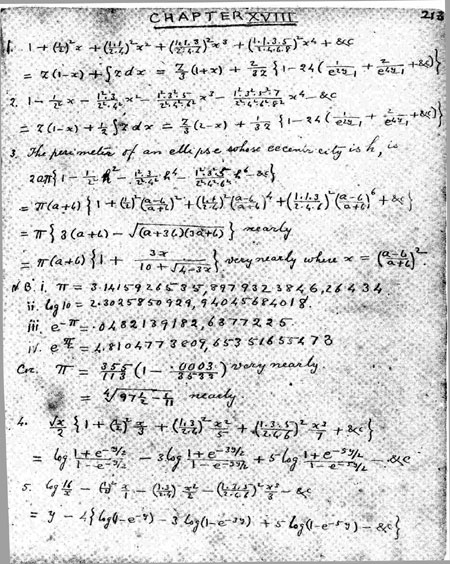 CHAPTER XVIII
213
1. 1 + (½)²x + (1·1/2·4)²x² + (1·1·3/2·4·6)²x³ + (1·1·3·5/2·4·6·8)²x⁴ + &c
2. 1 − 1/2² x − 1²·3/2²·4² x² − 1²·3²·5/2²·4²·6² x³ − 1²·3²·5²·7/2²·4²·6²·8² x⁴ − &c
3. The perimeter of an ellipse whose eccentricity is h, is
2aπ{1 − 1/2² h² − 1²·3/2²·4² h⁴ − 1²·3²·5/2²·4²·6² h⁶ − &c}
= π(a+b){1 + (½)²(a−b/a+b)² + (1·1/2·4)²(a−b/a+b)⁴ + (1·1·3/2·4·6)²(a−b/a+b)⁶ + &c}
= π{3(a+b) − √(a+3b)(3a+b)} nearly
= π(a+b){1 + 3x/10+√4−3x} very nearly where x = (a−b/a+b)².
N.B. i. π = 3.14159 26535, 89793 23846, 26434
ii. log 10 = 2.30258 50929, 94045 68401 8.
iii. e^−π = .04321 39182, 63772 25
iv. e^π/2 = 4.81047 73809, 65351 65547 3
Cor. π = 355/113 (1 − .0003/3533) very nearly.
= ⁴√97½ − 1/11 nearly.
4. √x/2 {1 + (½)² x/3 + (1·3/2·4)² x²/5 + (1·3·5/2·4·6)² x³/7 + &c}
= log 1+e^−y/2/1−e^−y/2 − 3 log 1+e^−3y/2/1−e^−3y/2 + 5 log 1+e^−5y/2/1−e^−5y/2 − &c
5. log 16/x − (½)² x/1 − (1·3/2·4)² x²/2 − (1·3·5/2·4·6)² x³/3 − &c
= y − 4{log(1−e^−y) − 3 log(1−e^−3y) + 5 log(1−e^−5y) − &c}